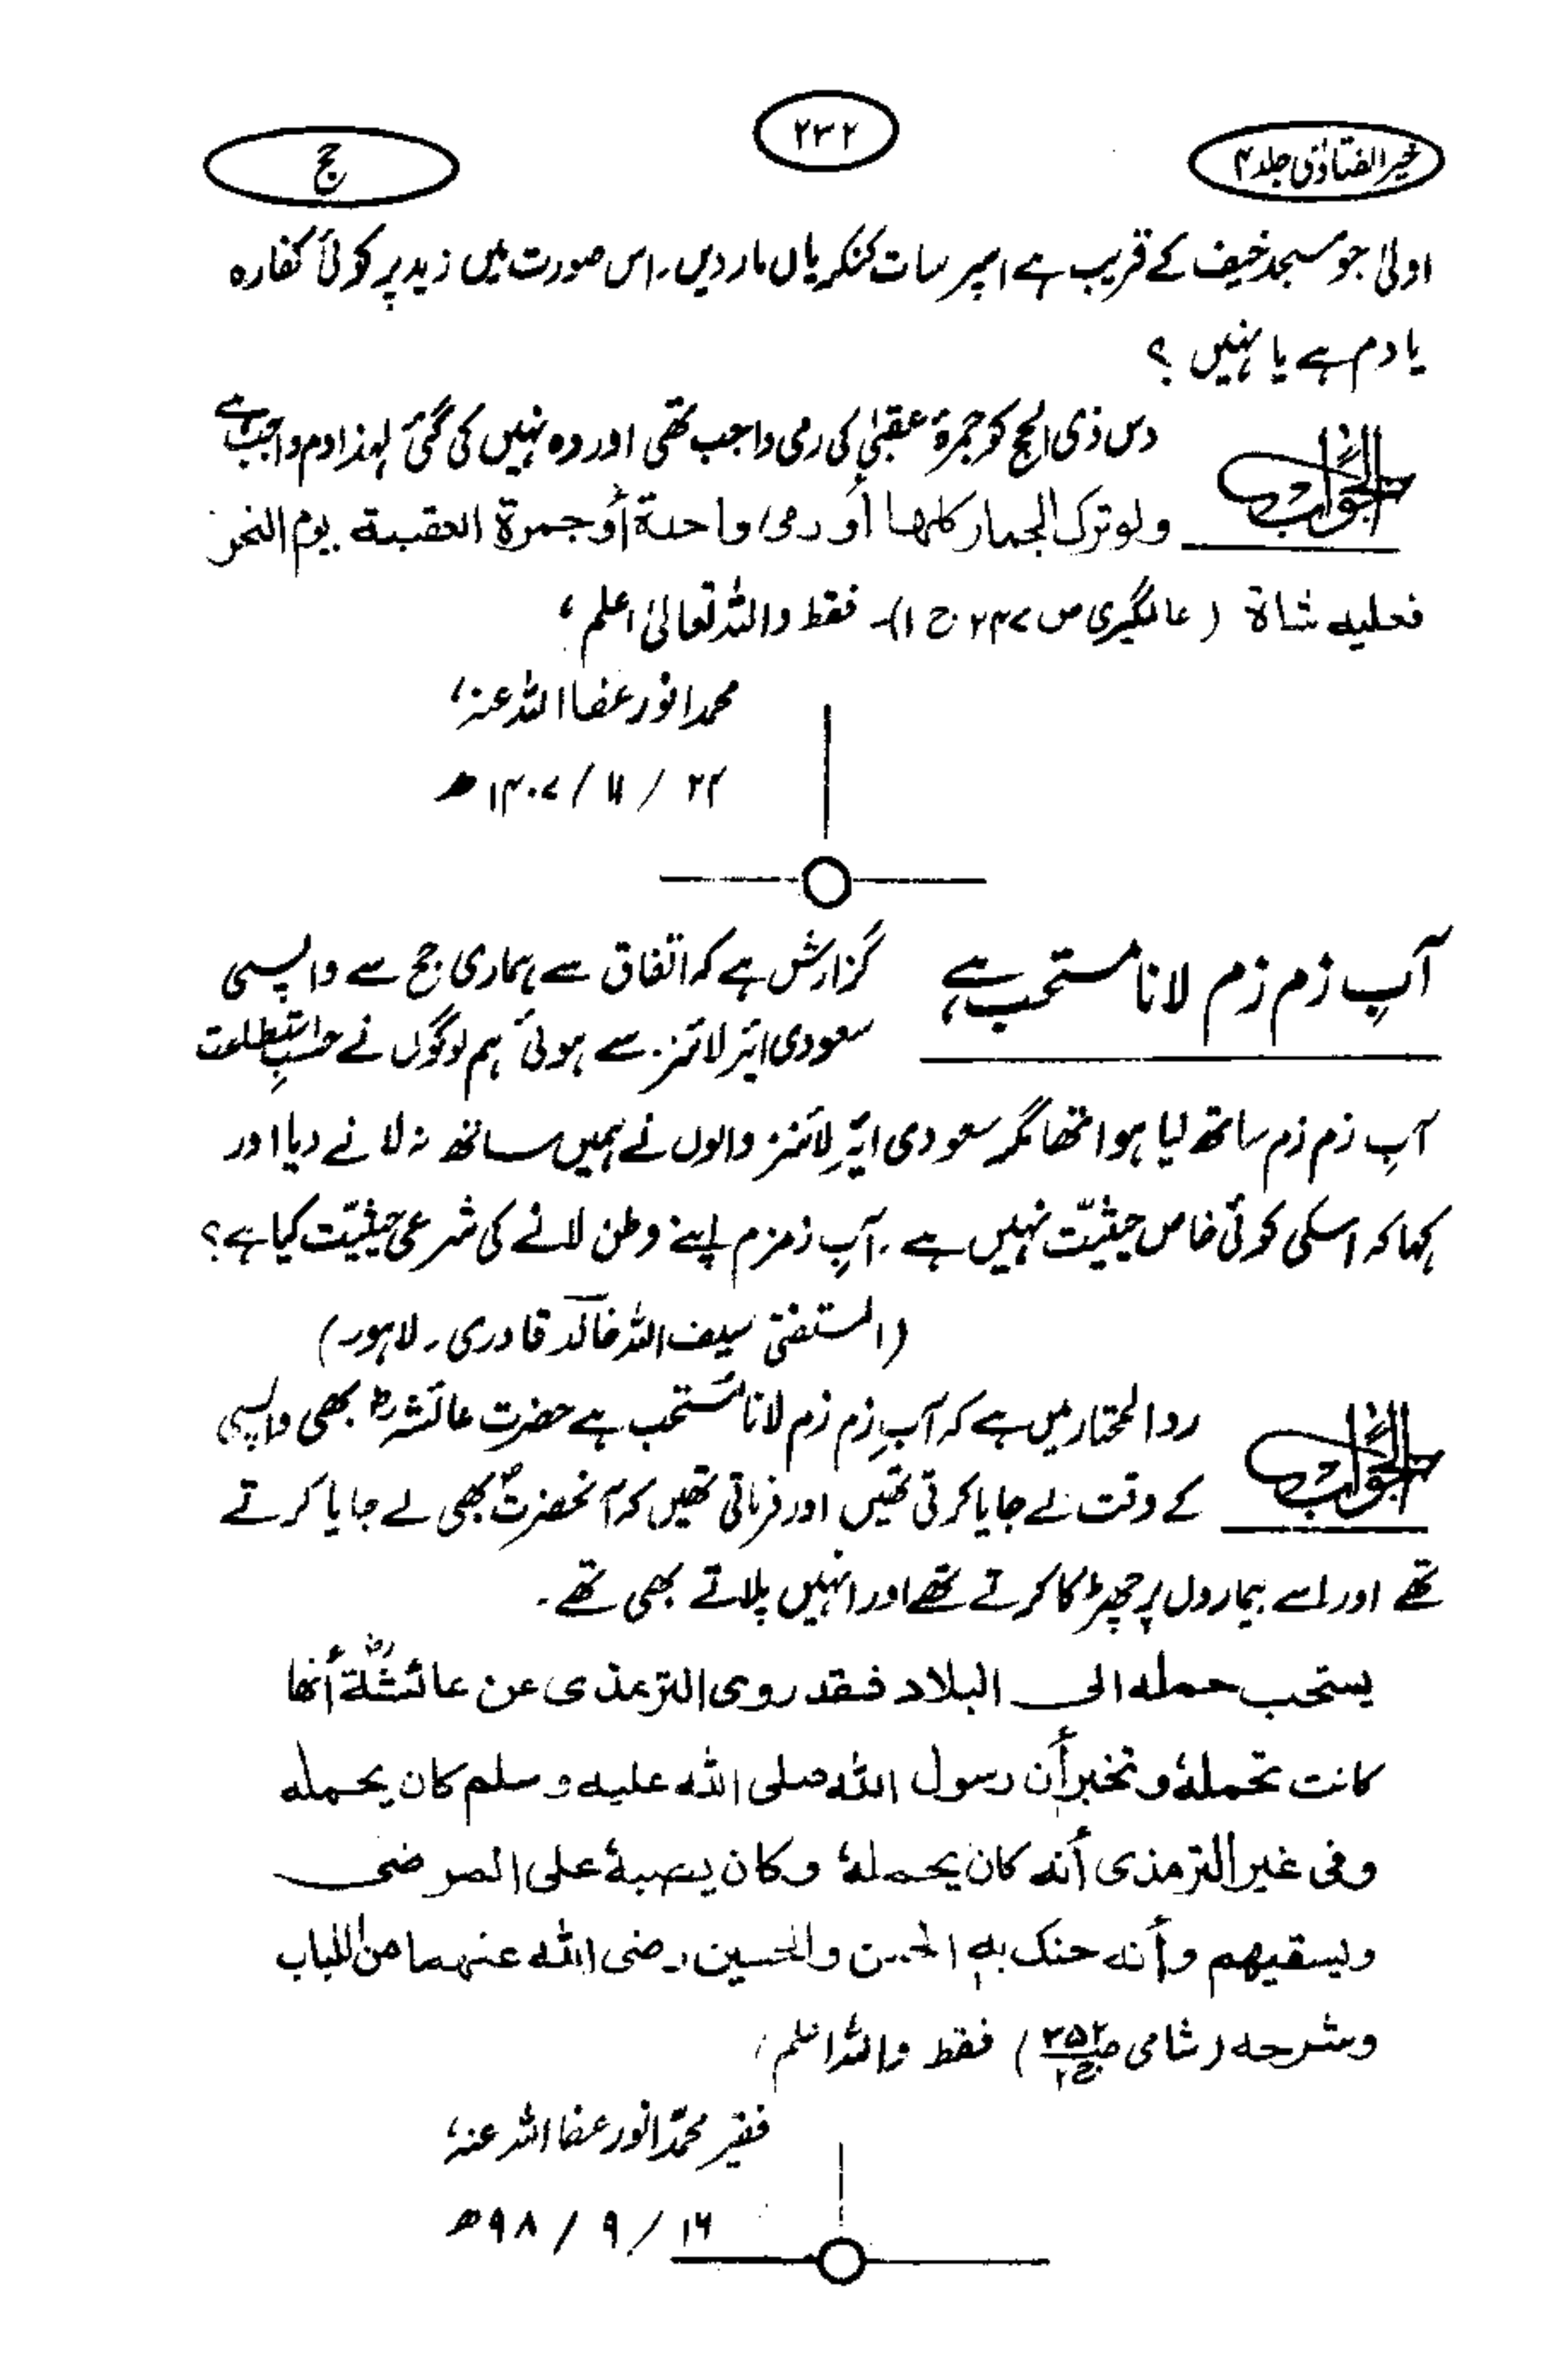 خیر الفتاویٰ جلد ۴
۲۳۲
حج
اولیٰ جو مسجد خیف کے قریب ہے اسپر سات کنکریاں مار دیں۔ اس صورت میں زید پر کوئی کفارہ
یا دم ہے یا نہیں ؟
الجواب
دس ذی الحج کو جمرۂ عقبیٰ کی رمی واجب تھی اور وہ نہیں کی گئی لہذا دم واجب ہے
ولو ترک الجمار کلها أو رمی واحدة أو جمرة العقبة یوم النحر
فعلیه شاة (عالمگیری ص ۲۴۷ ج ۱)۔ فقط واللہ تعالیٰ اعلم ،
محمد انور عفا اللہ عنہ،
۲۴ / ۱۱ / ۱۴۰۷ ھ
آبِ زم زم لانا مستحب ہے
گزارش ہے کہ اتفاق سے ہماری حج سے واپسی
سعودی ایئر لائنز سے ہوئی ہم لوگوں نے حسبِ استطاعت
آبِ زم زم ساتھ لیا ہوا تھا مگر سعودی ایئر لائنز والوں نے ہمیں ساتھ نہ لانے دیا اور
کہا کہ اسکی کوئی خاص حیثیّت نہیں ہے ۔ آبِ زمزم اپنے وطن لانے کی شرعی حیثیّت کیا ہے؟
(المستفتی سیف اللہ خالد قادری ۔ لاہور)
الجواب
رد المختار میں ہے کہ آبِ زم زم لانا مستحب ہے حضرت عائشہؓ بھی واپسی
کے وقت لے جایا کرتی تھیں اور فرماتی تھیں کہ آنحضرتؐ بھی لے جایا کرتے
تھے اور اسے بیماروں پر چھڑکا کرتے تھے اور انہیں پلاتے بھی تھے ۔
یستحب حمله الی البلاد فقد روی الترمذی عن عائشةؓ أنها
کانت تحملهٗ و تخبر أن رسول الله صلی الله علیه وسلم کان یحمله
وفی غیر الترمذی أنه کان یحملهٗ وکان یصبهٗ علی المرضی
ویسقیهم وأنه حنک به الحسن والحسین رضی الله عنهما من اللباب
وشرحه (شامی ص ۳۵۲ ج ۲) فقط واللہ اعلم ،
فقیر محمّد انور عفا اللہ عنہ،
۱۶ / ۹ / ۹۸ ھ